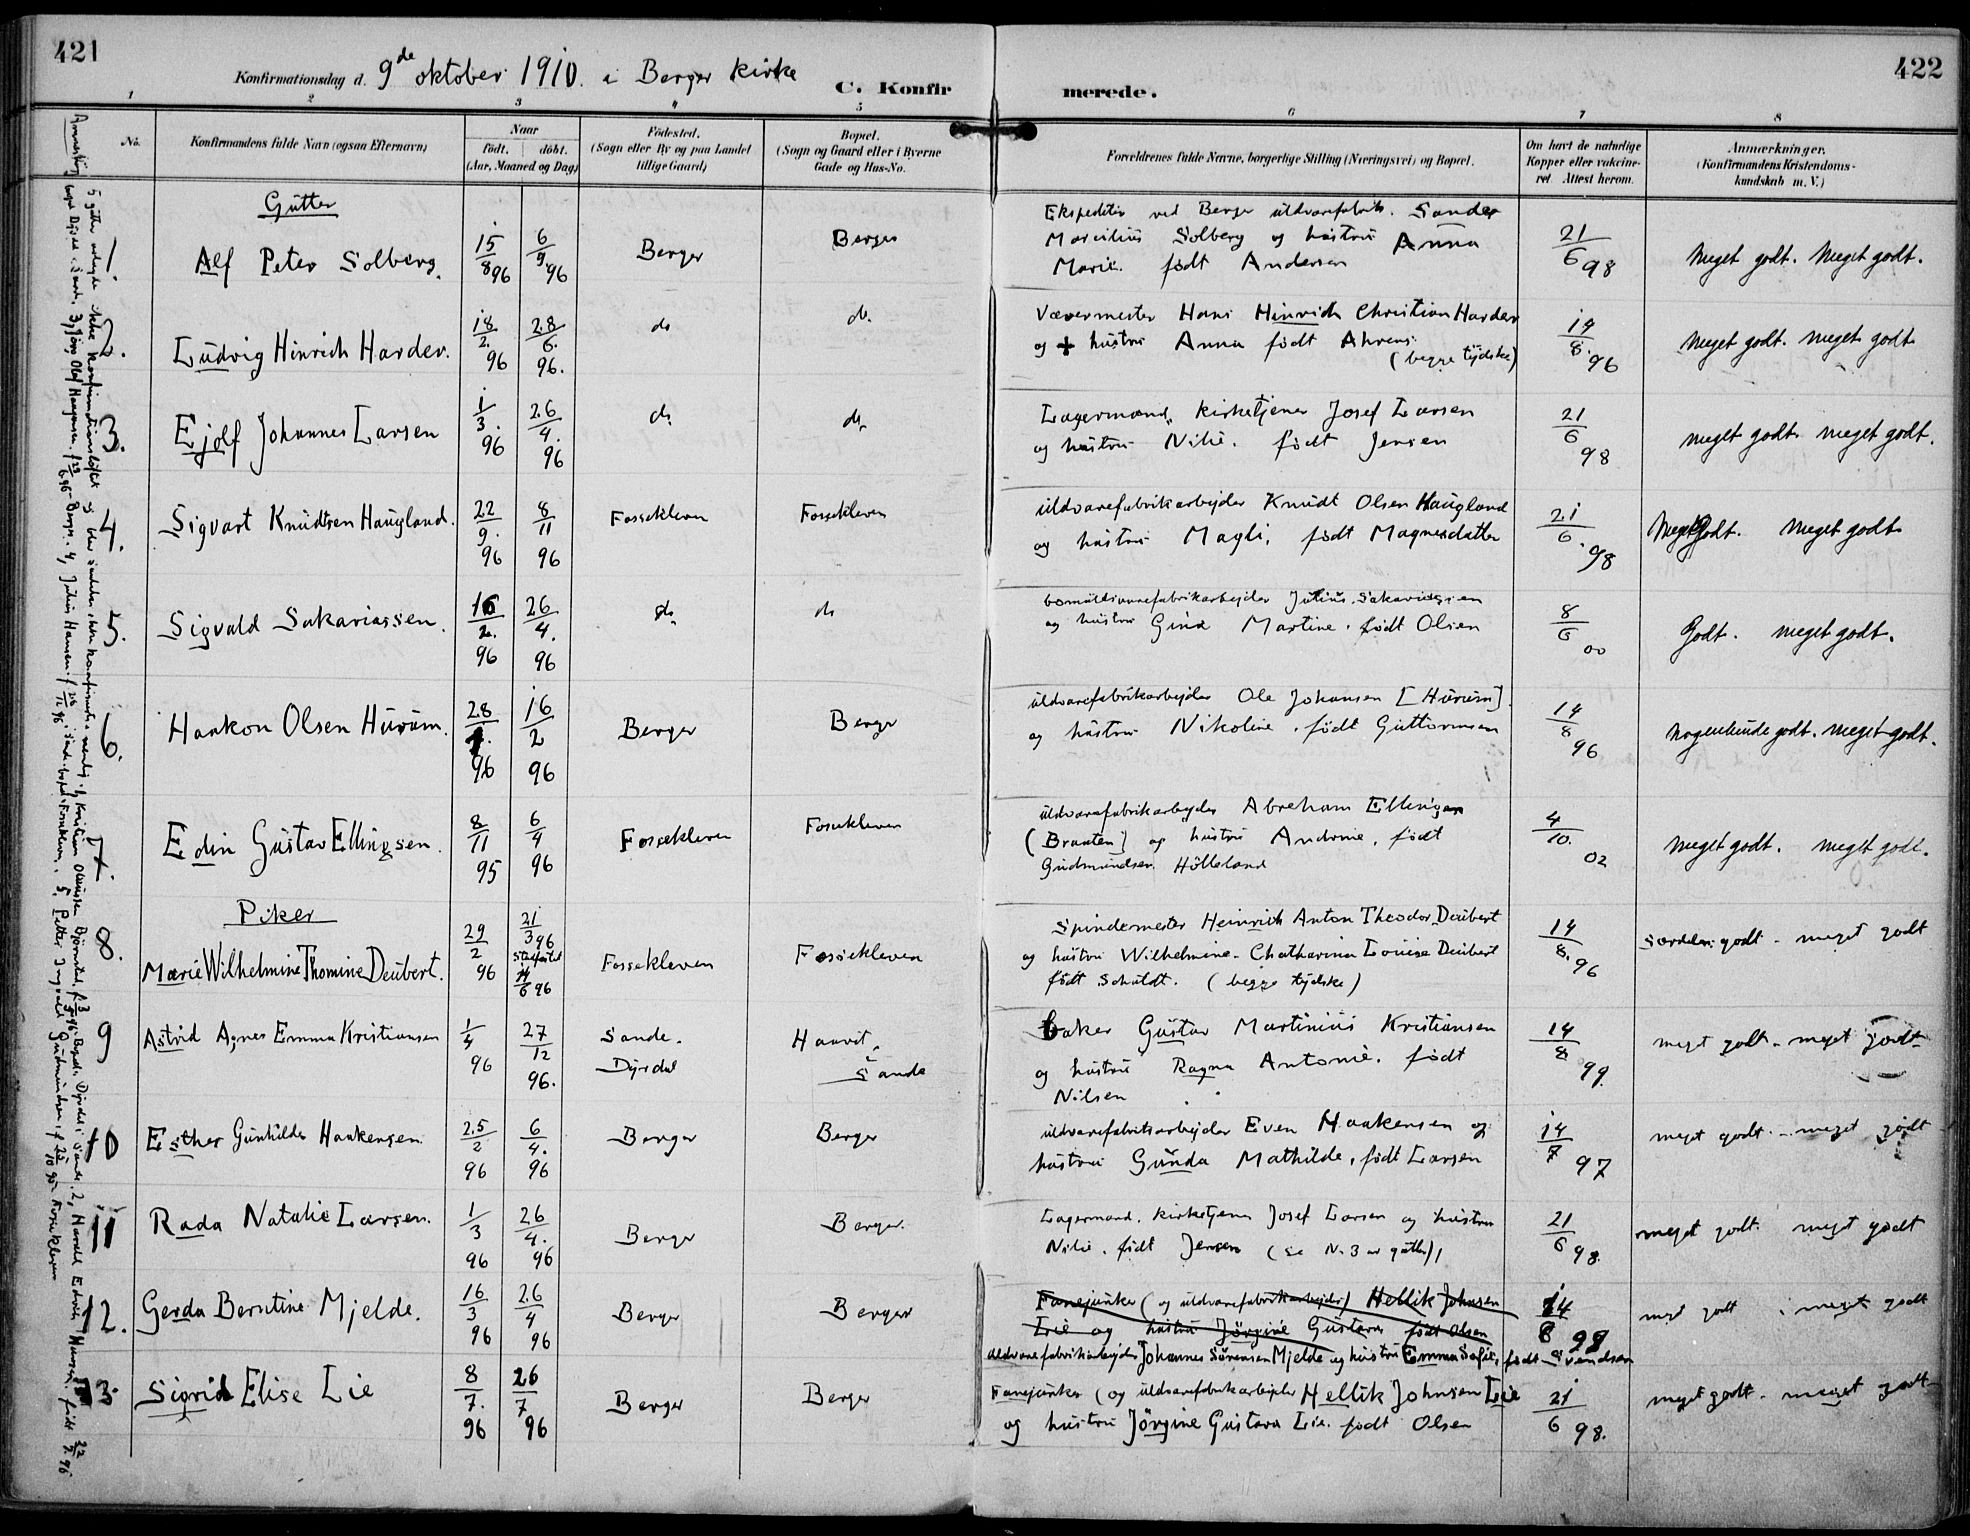 421
422
Konfirmationsdag d. 9de oktober 1910. i Berger kirke
C. Konfirmerede.
1 2 3 4 5 6 7 8
No.
Konfirmandens fulde Navn (ogsaa Efternavn)
Naar
født. døbt.
(Aar, Maaned og Dag)
Fødested.
(Sogn eller By og paa Landet
tillige Gaard)
Bopæl.
(Sogn og Gaard eller i Byerne
Gade og Hus-No.
Forældrenes fulde Navne, borgerlige Stilling (Næringsvei) og Bopæl.
Om havt de naturlige
Kopper eller vaccine-
ret Attest herom.
Anmærkninger.
(Konfirmandens Kristendoms-
kundskab m. V.)
Gutter
1. Alf Peter Solberg. 15/8 96 6/9 96 Berger Berger
Ekspeditør ved Berger uldvarefabrik. Sander
Marcilius Solberg og hustru Anna
Marie. født Andersen
21/6 98 Meget godt. Meget godt.
2. Ludvig Hinrich Harder. 18/2. 96 28/6. 96. do do.
Vævermester Hans Hinrich Christian Harder
og + hustru Anna født Ahrens.
(begge tydske)
14/8. 96 Meget godt. meget godt.
3. Ejolf Johannes Larsen 1/3. 96 26/4. 96 do do
Lagermand, kirketjener Josef Larsen
og hustru Nilie. født Jensen
21/6 98 meget godt. meget godt.
4. Sigvart Knudtsen Haugland. 22/9. 96 8/11 96 Fossekleven Fossekleven
uldvarefabrikarbejder Knudt Olsen Haugland
og hustru Magli, født Magnesdatter
21/6. 98 Meget godt. Meget godt.
5. Sigvald Sakariassen. 16/2. 96 26/4. 96 do do
bomuldsvarefabrikarbejder Julius Sakariassen
og hustru Gina Martine. født Olsen
8/6 00 Godt. meget godt.
6. Haakon Olsen Hurum. 28/1. 96 16/2 96 Berger Berger
uldvarefabrikarbejder Ole Johansen [Hurum].
og hustru Nikoline. født Guttormsen
14/8 96 nogenlunde godt. meget godt.
7. Edin Gustav Ellingsen. 8/11 95 6/4 96 Fossekleven Fossekleven
uldvarefabrikarbejder Abraham Ellingsen
(Braaten) og hustru Andrine, født
Gudmundsen Hølleland
4/10. 02 Meget godt. meget godt.
Piker
8. Marie Wilhelmine Thomine Deubert. 29/2 96 21/3 96 stadfæstet 14/6 96 Fossekleven Fossekleven
Spindemester Heinrich Anton Theodor Deubert
og hustru Wilhelmine Chatharina Louise Deubert
født Schuldt. (begge tydske)
14/8. 96 Særdeles godt - meget godt
9 Astrid Agnes Emma Kristiansen 1/4 96 27/12 96. Sande. Dyrdal Haavet, Sande
baker Gustav Martinius Kristiansen
og hustru Ragna Antonie. født
Nilsen
14/8 99. meget godt - meget godt
10 Esther Gunhilda Haakensen 25/2 96 6/4. 96 Berger Berger
uldvarefabriksarbejder Even Haakensen og
hustru Gunda Mathilde, født Larsen
14/7 97 meget godt - meget godt
11 Rada Natalie Larsen. 1/3 96 26/4. 96 Berger Berger.
Lagermand. kirketjener Josef Larsen og hustru
Nilie. født Jensen (se N. 3 av gutter)
21/6 98. meget godt. meget godt
12. Gerda Berntine Mjelde. 16/3 96 26/4 96 Berger Berger
Fanejunker (og uldvarefabrikarbejder) Hellik Johnsen
Lie og hustru Jørgine Gustava født Olsen
uldvarefabrikarbejder Johannes Sørensen Mjelde og hustru Emma Sofie, født Svendsen
14/8 98 meget godt. meget godt
13. Sigrid Elise Lie 8/7. 96 26/7 96 Berger Berger
Fanejunker (og uldvarefabrikarbejder Hellik Johnsen Lie
og hustru Jørgine Gustava Lie. født Olsen
21/6 98. meget godt. meget godt
5 gutter avlagde ikke konfirmationsløftet og blev